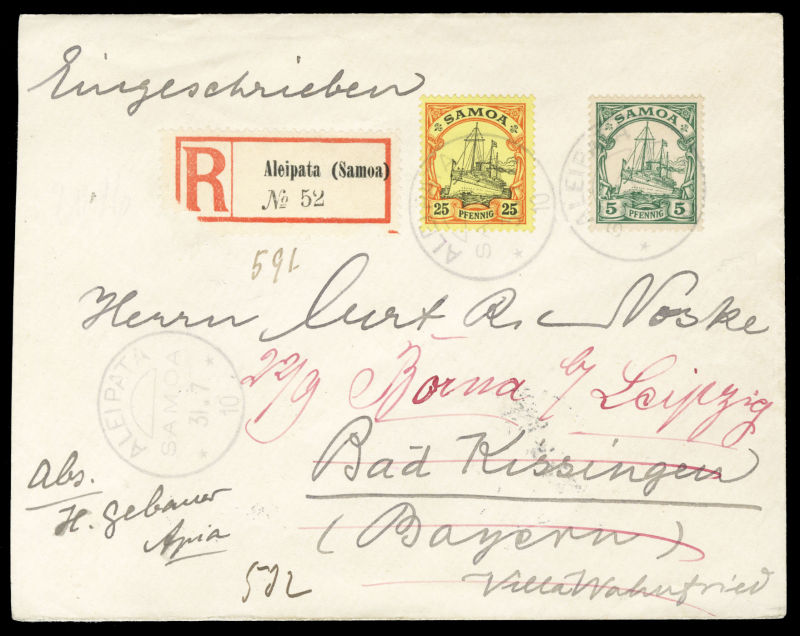 Eingeschrieben
R
Aleipata (Samoa)
№ 52
SAMOA
25 PFENNIG 25
SAMOA
5 PFENNIG 5
ALEIPATA
10
ALEIPATA
591
Herrn Curt R. Noske
22/9 Borna b/ Leipzig
ALEIPATA
SAMOA
31.7
10
Bad Kissingen
(Bayern)
Villa Wahnfried
Abs.
H. Gebauer
Apia
592